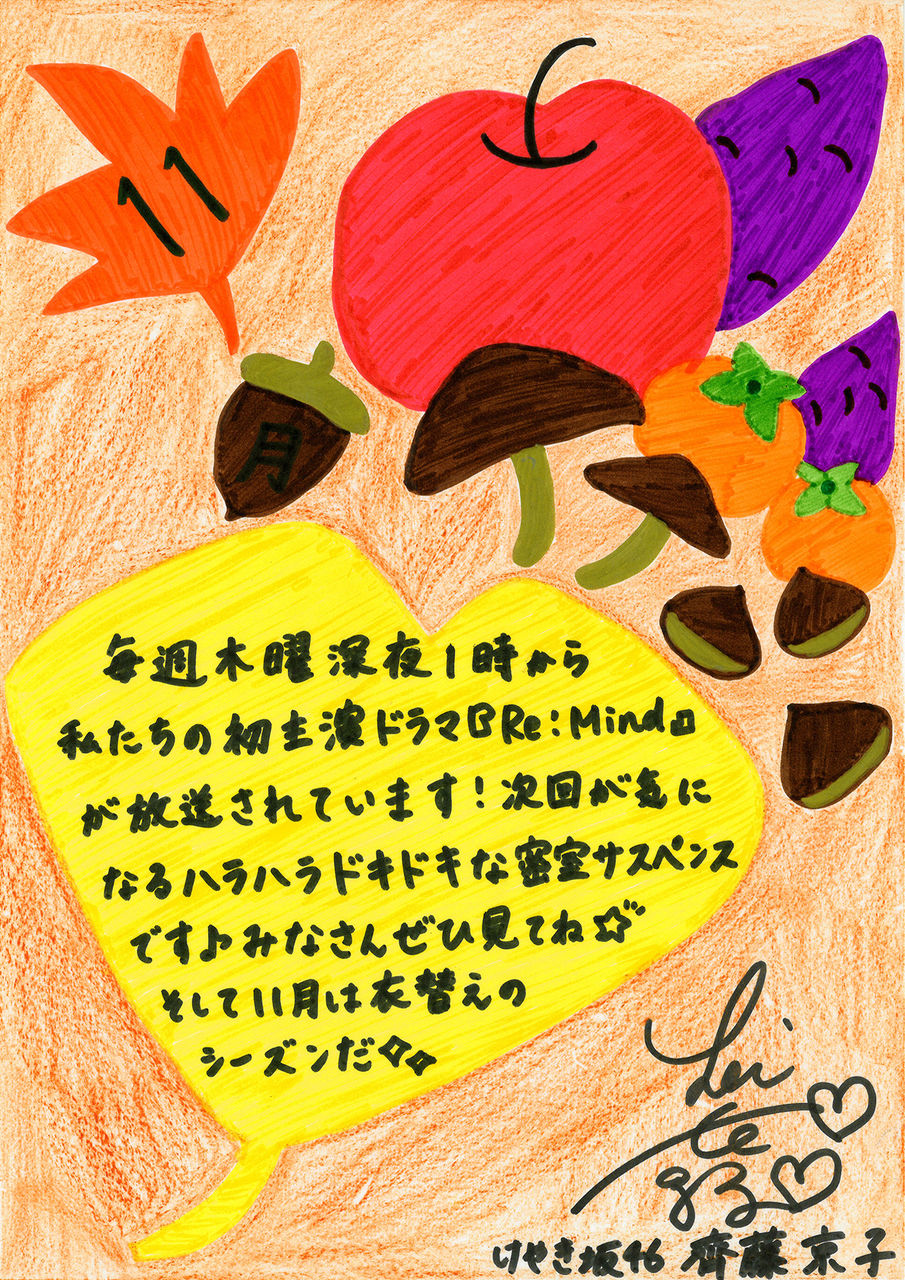 11
月
毎週木曜深夜1時から
私たちの初主演ドラマ『Re:Mind』
が放送されています!次回が気に
なるハラハラドキドキな密室サスペンス
です♪みなさんぜひ見てね☆
そして11月は衣替えの
シーズンだ✧✧
けやき坂46 齊藤京子